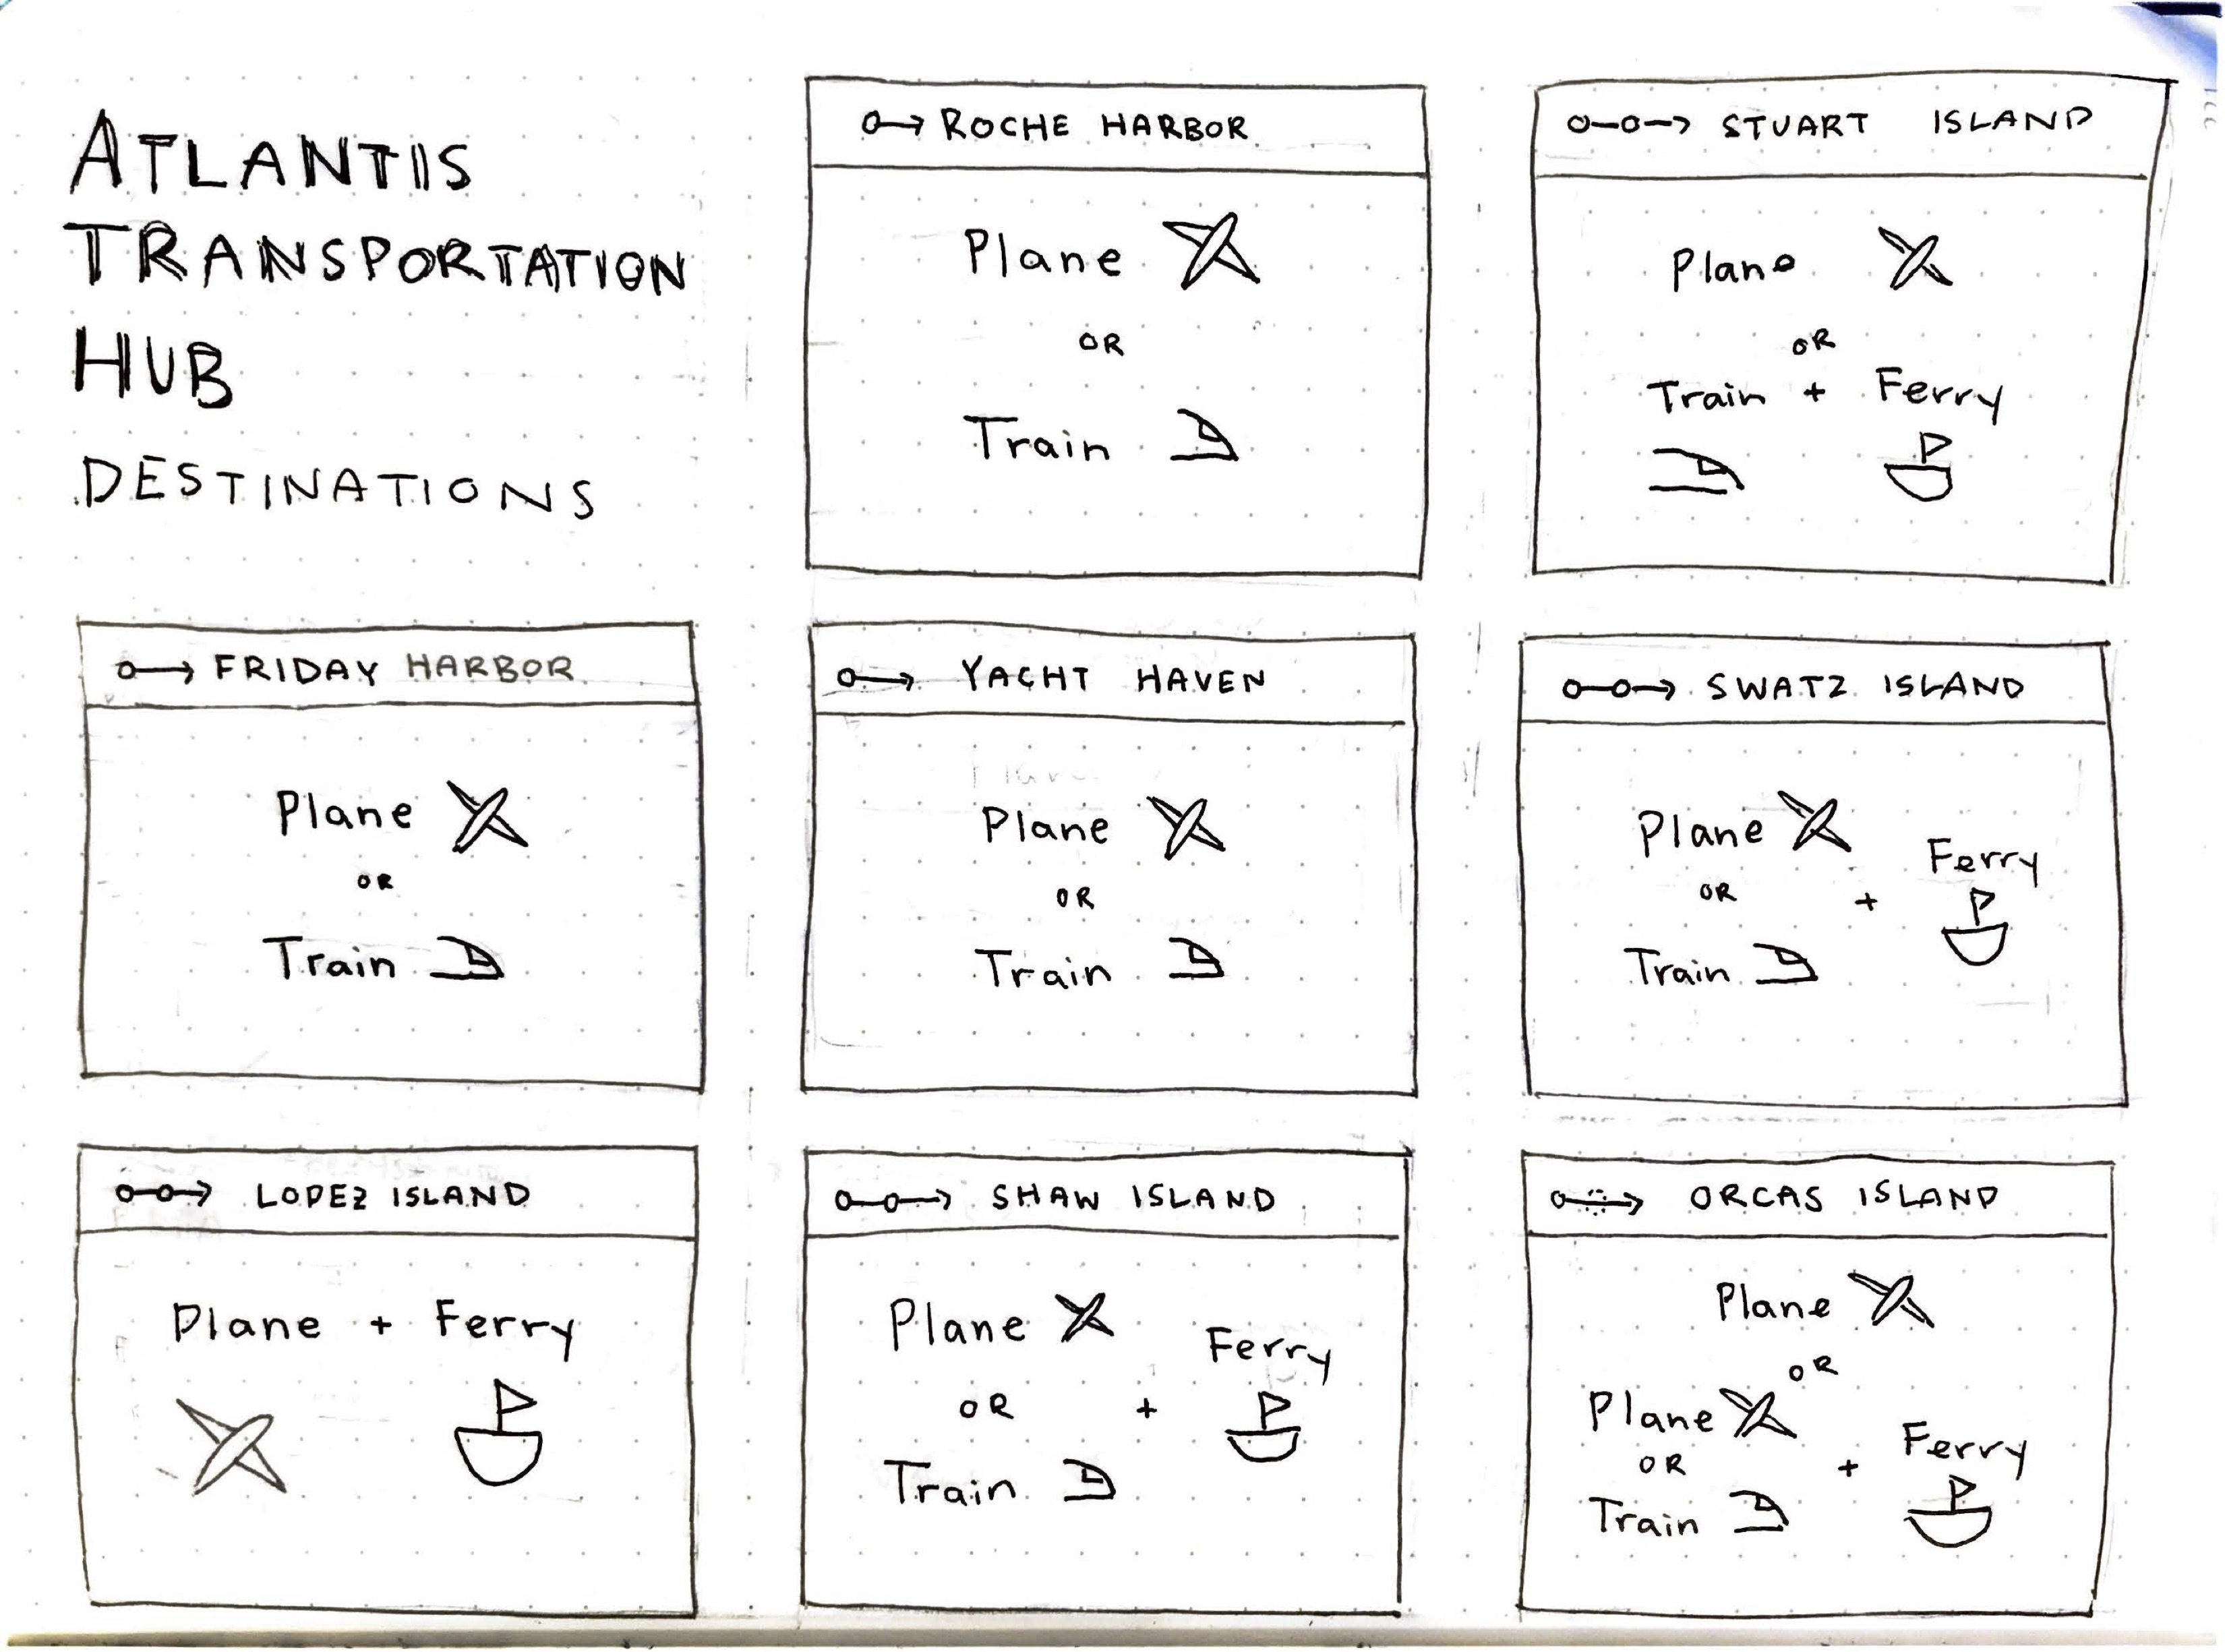 ATLANTIS
TRANSPORTATION
HUB
DESTINATIONS
ROCHE HARBOR
Plane
OR
Train
STUART ISLAND
Plane
OR
Train + Ferry
FRIDAY HARBOR
Plane
OR
Train
YACHT HAVEN
Plane
OR
Train
SWATZ ISLAND
Plane
OR
Train
+ Ferry
LOPEZ ISLAND
Plane + Ferry
SHAW ISLAND
Plane
OR
Train
+ Ferry
ORCAS ISLAND
Plane
OR
Plane
OR
Train
+ Ferry